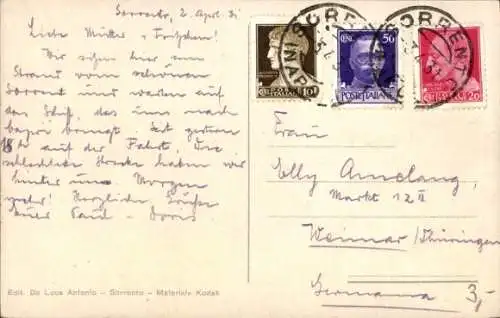 Sorrento, 2. April 31
Liebe Mutter u. Fritzchen!
Wir sitzen hier am
Strand vom schönen
Sorrent und warten auf
das Schiff, das uns nach
Capri bringt. Seit gestern
18h auf der Fahrt. Die
schlechte Strecke haben wir
hinter uns. Morgen
mehr! Herzliche Grüße
Euer Paul - Doris
Edit. De Luca Antonio - Sorrento - Materiale Kodak
SORRENTO
SORRENTO
10
CENT. 50
POSTE ITALIANE
20
Frau
Elly Amelang,
Markt 12 II
Weimar /Thüringen
Germania
3,-